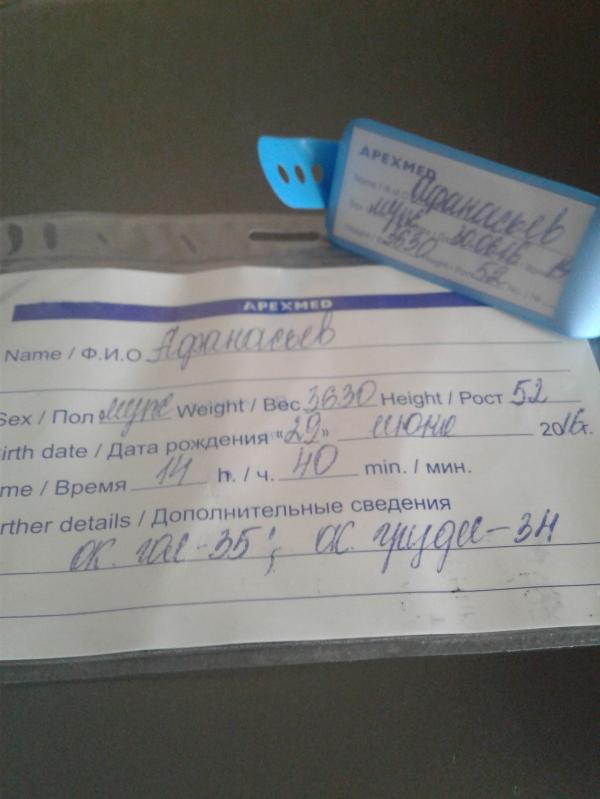 APEXMED
Афанасьев
муж
3630
52
APEXMED
Name / Ф.И.О Афанасьев
Sex / Пол муж Weight / Вес 3630 Height / Рост 52
irth date / Дата рождения «29» июня 2016г.
me / Время 14 h. / ч. 40 min. / мин.
rther details / Дополнительные сведения
ок. гол - 35; ок. груди - 34